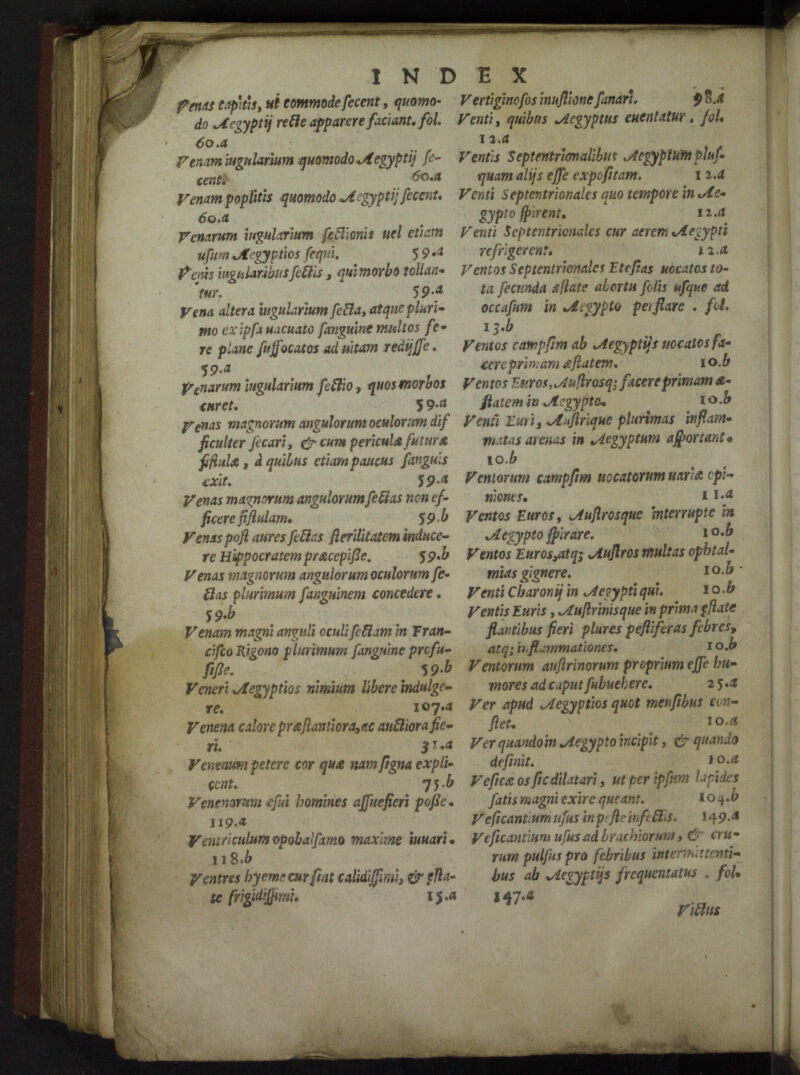 INDEX
Venas capitis, ut commode secent, quomo-
do Aegyptij recte apparere faciant. fol.
60.a
Venam iugularium quomodo Aegyptij se-
cent. 60.a
Venam poplitis quomodo Aegyptij secent.
60.a
Venarum iugularium sectionis uel etiam
usum Aegyptios sequi. 59.a
Venis iugularibus sectis, qui morbo tollan-
tur. 59.a
Vena altera iugularium secta, atque pluri-
mo ex ipsa uacuato sanguine multos fe-
re plane suffocatos ad uitam redijsse.
59.a
Venarum iugularium sectio, quos morbos
curet. 59.a
Venas magnorum angulorum oculorum dif
ficulter secari, & cum pericula futuræ
fistulæ, à quibus etiam paucus sanguis
exit. 59.a
Venas magnorum angulorum sectas non ef-
ficere fistulam. 59.b
Venas post aures sectas sterilitatem induce-
re Hippocratem præcepisse. 59.b
Venas magnorum angulorum oculorum se-
ctas plurimum sanguinem concedere.
59.b
Venam magni anguli oculi sectam in Fran-
cisco Rigono plurimum sanguine profu-
sisse. 59.b
Veneri Aegyptios nimium libere indulge-
re. 107.a
Venena calore præstantiora, ac auctiora fie-
ri. 31.a
Venenum petere cor quæ nam signa expli-
cent. 75.b
Venenorum esui homines assuefieri posse.
119.a
Ventriculum opobalsamo maxime iuuari.
118.b
Ventres hyeme cur sint calidissimi, & ęsta-
te frigidissimi. 15.a
Vertiginosos inustione sanari. 98.a
Venti, quibus Aegyptus euentatur. fol.
12.a
Ventis Septentrionalibus Aegyptum plus-
quam alijs esse expositam. 12.a
Venti Septentrionales quo tempore in Ae-
gypto spirent. 12.a
Venti Septentrionales cur aerem Aegypti
refrigerent. 12.a
Ventos Septentrionales Etesias uocatos to-
ta secunda æstate ab ortu solis usque ad
occasum in Aegypto perflare. fol.
13.b
Ventos campsim ab Aegyptijs uocatos fa-
cere primam æstatem. 10.b
Ventos Euros, Austrosq; facere primam æ-
statem in Aegypto. 10.b
Venti Euri, Austrique plurimas inflam-
matas arenas in Aegyptum asportant.
10.b
Ventorum campsim uocatorum uariæ opi-
niones. 11.a
Ventos Euros, Austrosque interrupte in
Aegypto spirare. 10.b
Ventos Euros, atq; Austros multas ophtal-
mias gignere. 10.b
Venti Charonij in Aegypti qui. 10.b
Ventis Euris, Austrinisque in prima ęstate
flantibus fieri plures pestiferas febres,
atq; inflammationes. 10.b
Ventorum austrinorum proprium esse hu-
mores ad caput subuehere. 25.a
Ver apud Aegyptios quot mensibus con-
stet. 10.a
Ver quando in Aegypto incipit, & quando
definit. 10.a
Vesicæ os sic dilatari, ut per ipsum lapides
satis magni exire queant. 104.b
Vesicantium usus in peste infectis. 149.a
Vesicantium usus ad brachiorum, & cru-
rum pulsus pro febribus intermittenti-
bus ab Aegyptijs frequentatus. fol.
147.a
Victus